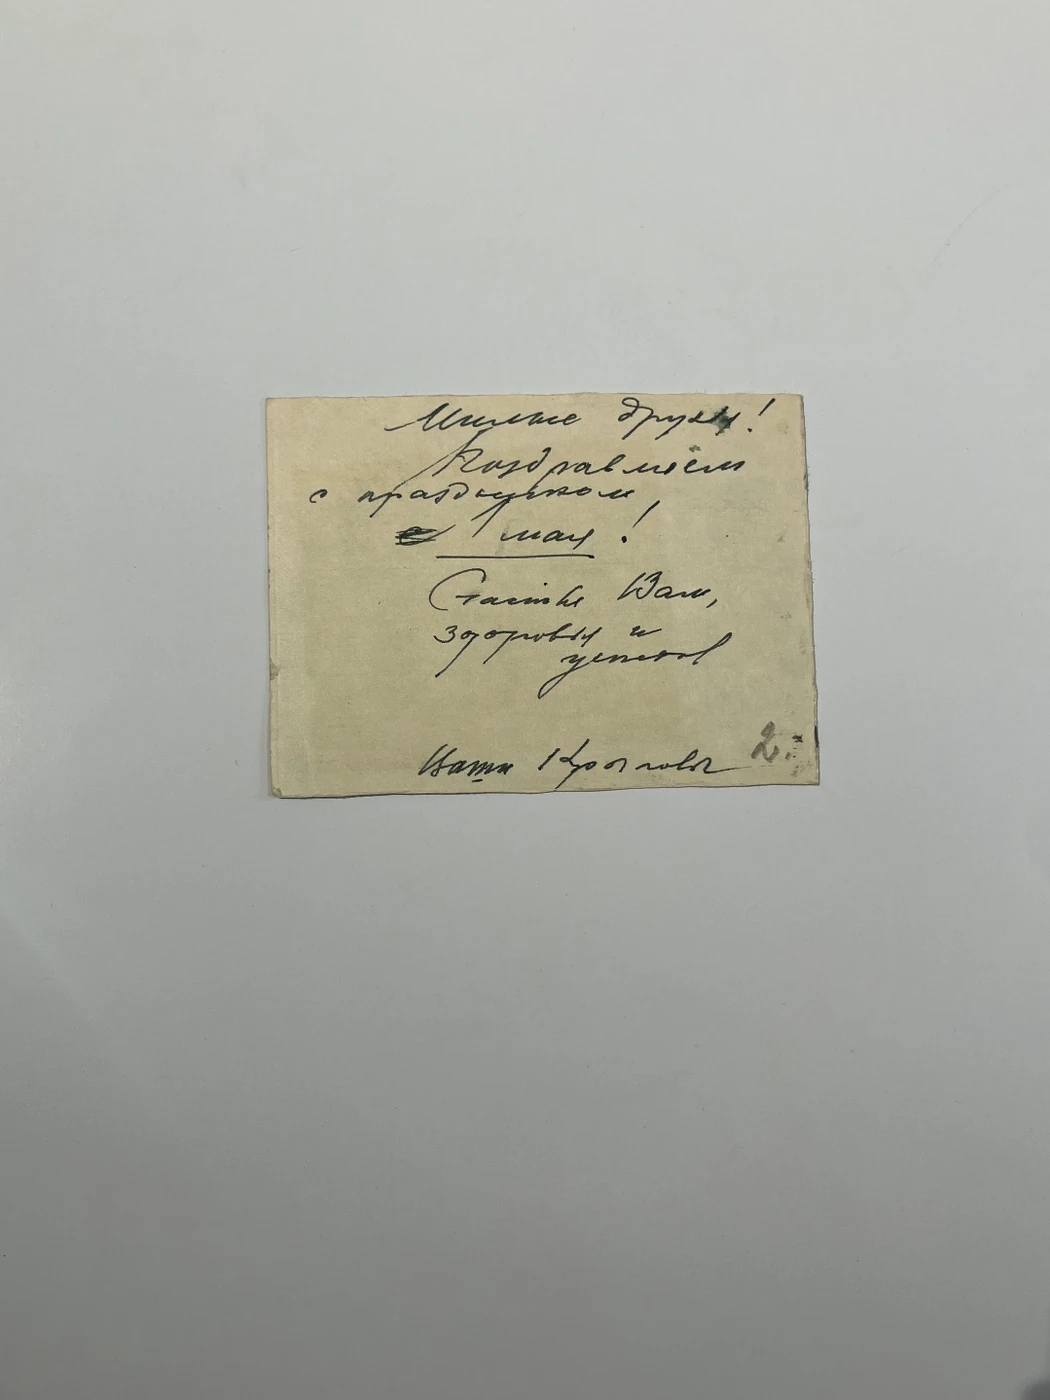 Милые друзья!
Поздравляем
с праздником
1 мая!
Счастья Вам,
здоровья и
успехов
Ваши
2.